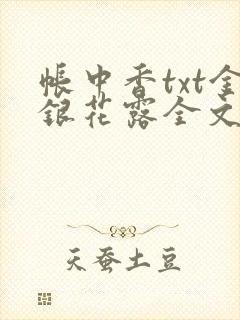 帐中香txt金
银花露全文
天蚕土豆